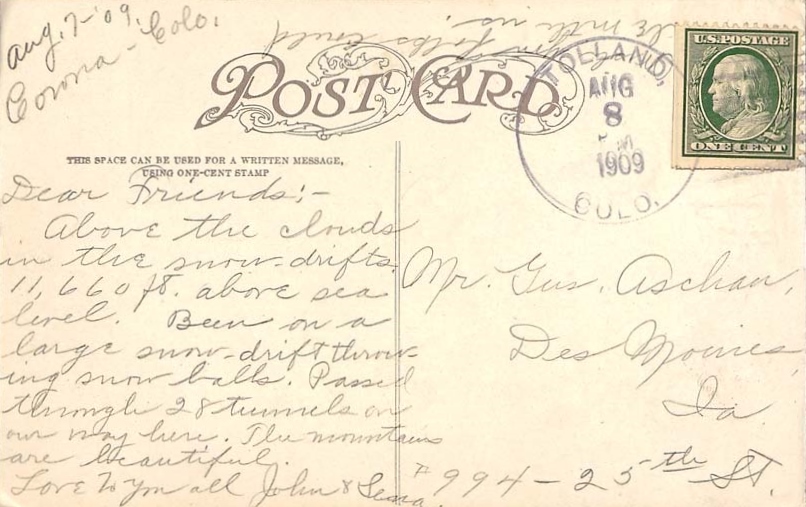 Aug. 7-'09.
Corona - Colo.
folks could
be with us.
POST CARD
TOLLAND,
AUG
8
1909
COLO.
U.S. POSTAGE
ONE CENT
THIS SPACE CAN BE USED FOR A WRITTEN MESSAGE,
USING ONE-CENT STAMP
Dear Friends:-
Above the clouds
in the snow-drifts.
11,660 ft. above sea
level. Been on a
large snow-drift throw-
ing snow balls. Passed
through 28 tunnels on
our way here. The mountains
are beautiful.
Love to you all John & Lena.
Mr. Gus. Aschan,
Des Moines,
Ia
#994-25th St.